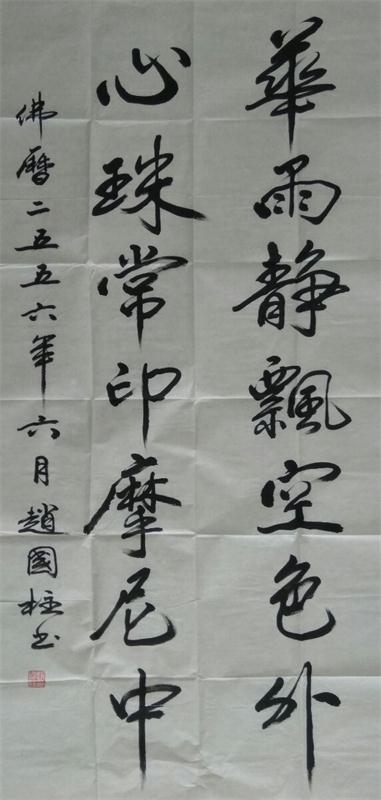 華雨静飄空色外
心珠常印摩尼中
佛曆二五五六年六月趙國柱书